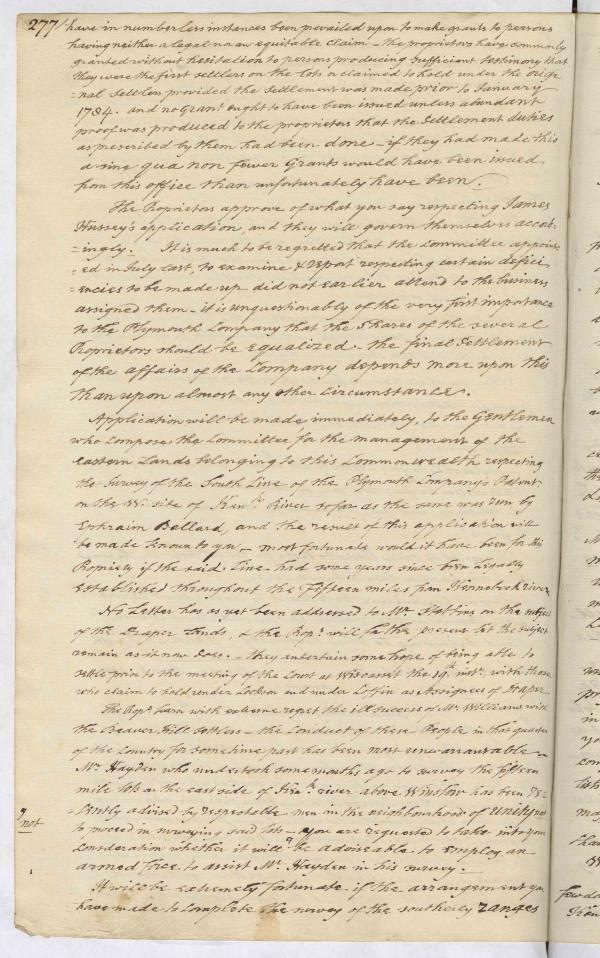 277/ have in numberless instances been prevailed upon to make grants to persons
having neither a legal nor an equitable claim - the proprietors have commonly
granted without hesitation to persons producing sufficient testimony that
they were the first settlers on the lots or claimed to hold under the origi
=nal Settlers provided the Settlement was made prior to January
1784. and no Grant ought to have been issued unless abundant
proof was produced to the proprietors that the Settlement duties
as prescribed by them had been done - if they had made this
a sine qua non fewer Grants would have been issued
from this office than unfortunately have been.
The Proprietors approve of what you say respecting James
Hussey's application, and they will govern themselves accord=
=ingly. It is much to be regretted that the Committee appoint
=ed in July last, to examine & report respecting certain defici
=encies to be made up did not earlier attend to the business
assigned them - it is unquestionably of the very first importance
to the Plymouth Company that the Shares of the several
Proprietors should be equalized - the final Settlement
of the affairs of the Company depends more upon this
than upon almost any other circumstance.
Application will be made, immediately, to the Gentlemen
who compose the Committee, for the management of the
Eastern Lands belonging to this Commonwealth respecting
the Survey of the South Line of the Plymouth Company's Patent
on the W. side of Kenk. River so far as the same was run by
Ephraim Ballard, and the result of this application will
be made known to you - most fortunate would it have been for this
Propriety if the said Line had some years since been legally
established throughout the Fifteen miles from Kennebeck river
No Letter has as yet been addressed to Mr. on the subject
of the Draper Lands, & the Prop. will for the present let the subject
remain as it now does. - they entertain some hope of being able to
settle prior to the meeting of the Court at Wiscasset the 19th. inst. with those
who claim to hold under and under as Assignees of Draper.
The Prop. learn with extreme regret the ill success of Mr. Williams with
the Beaver Hill settlers - the conduct of these People in that quarter
of the Country for some time past has been most unwarrantable -
Mr. Hayden who undertook some months ago to survey the fifteen
mile lots on the east side of Kenk. river above Winslow has been
advised by respectable men in the neighbourhood of Unity not
to proceed in surveying said lots - you are requested to take into your
consideration whether it will be adviseable to employ an
q not
armed force to assist Mr. Hayden in his survey.
It will be extremely fortunate if the arrangement you
have made to complete the survey of the southerly ranges